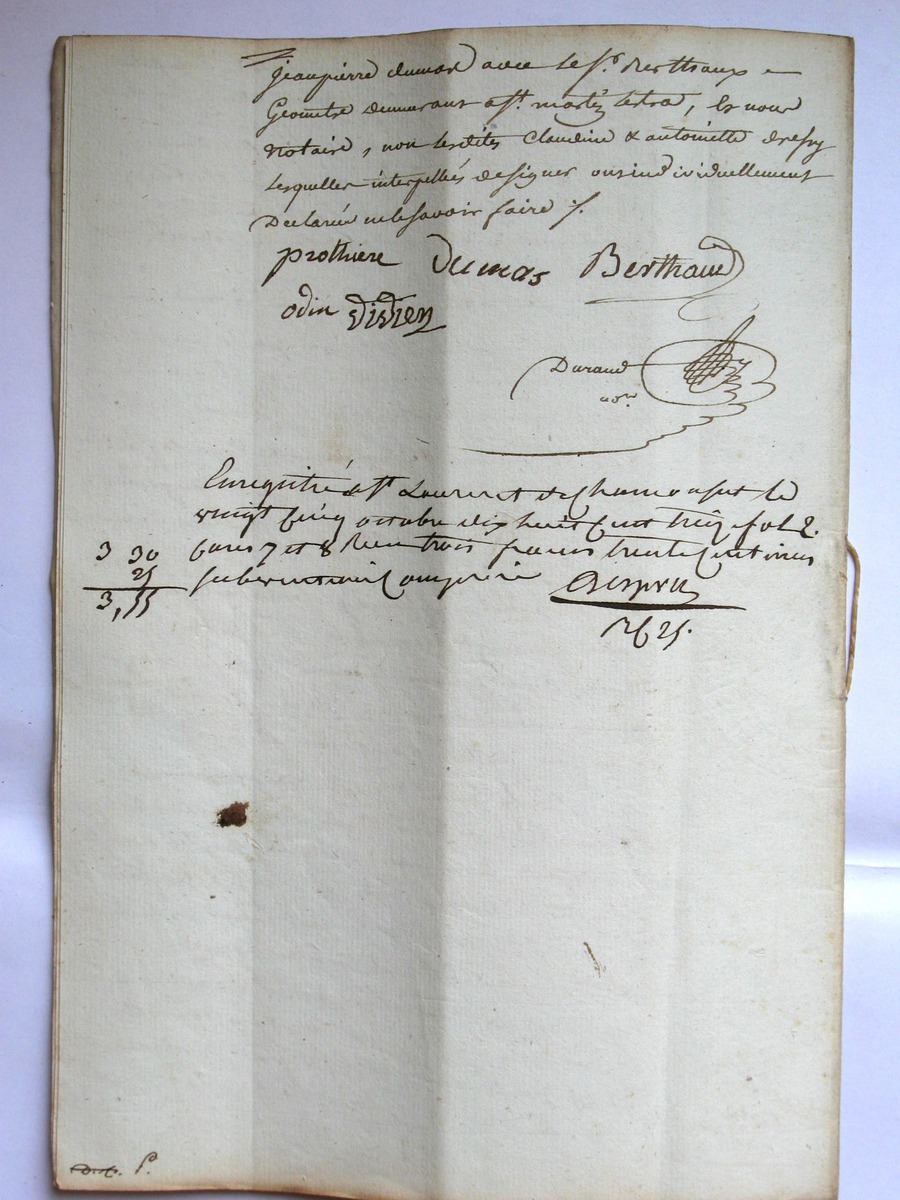 jeanpierre dumas avec le sr. Berthaux
Geometre demeurant a st. martin lestra, & nous
notaire, non lesdites Claudine & antoinette
lesquelles interpellés designer ont individuellement
Declarées ne le savoir faire ./.
prothiere Dumas Berthaud
odin
Durand
nore
Enregistré a st Laurent de Chamousset le
vingt cinq octobre dix huit cent treize fol 2.
3 30 cases 7 et 8 Reçu trois francs trente centimes
25 subvention comprise
3,55
25.